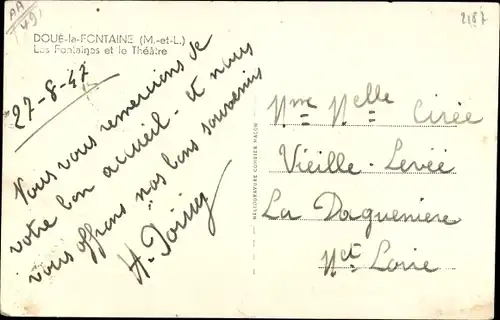 AA
49
2187
DOUÉ-la-FONTAINE (M.-et-L.)
Les Fontaines et le Théâtre
27-8-47
Vous vous remercions de
votre bon accueil - et nous
vous offrons nos bons souvenirs
H. Poissy
HÉLIOGRAVURE COMBIER MACON
Mme Melle Cirée
Vieille-Levée
La Dagueniere
M et Loire